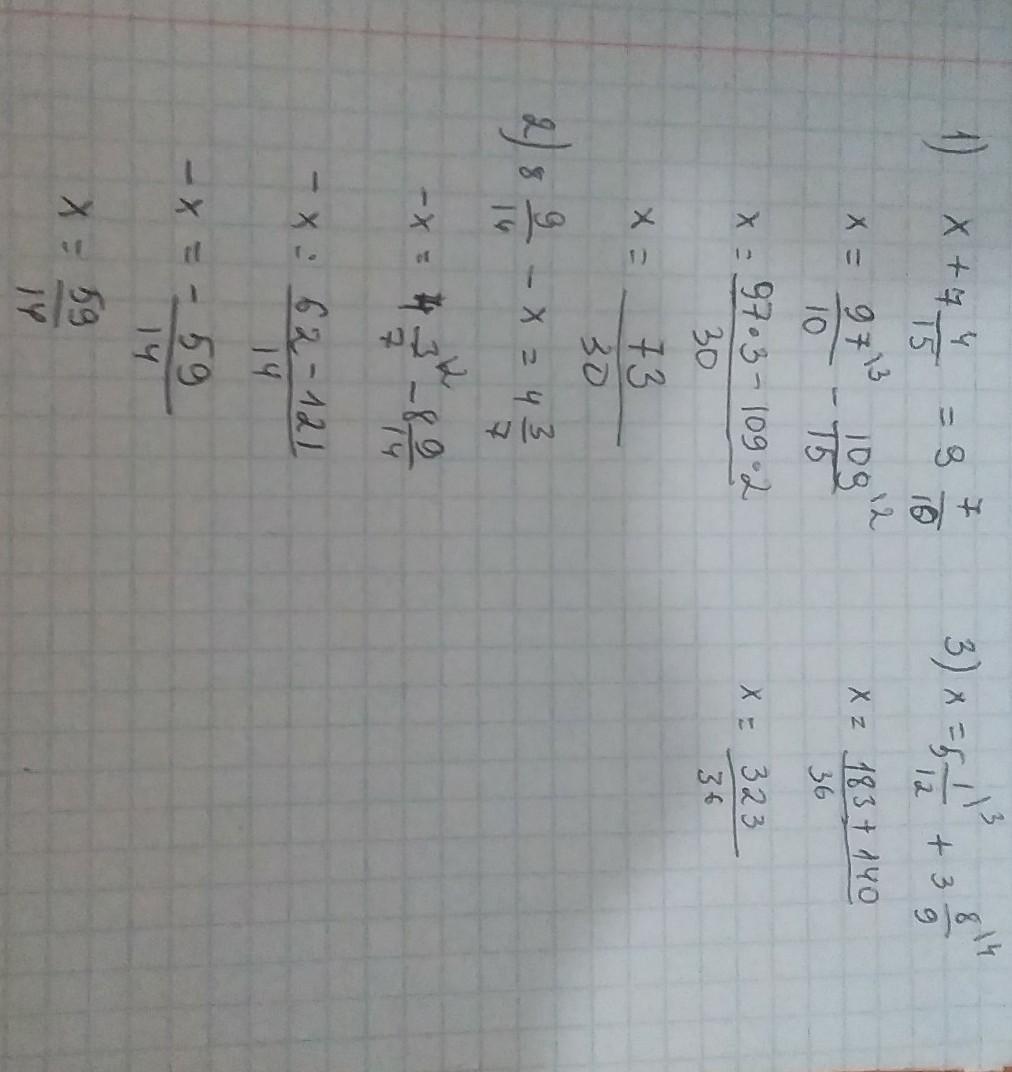 1) x + 7 4/15 = 9 7/10
x = 97\3/10 - 109\2/15
x = (97·3 - 109·2)/30
x = 73/30
2) 8 9/14 - x = 4 3/7
-x = 4 3\2/7 - 8 9/14
-x = (62 - 121)/14
-x = - 59/14
x = 59/14
3) x = 5 1\3/12 + 3 8\4/9
x = (183 + 140)/36
x = 323/36